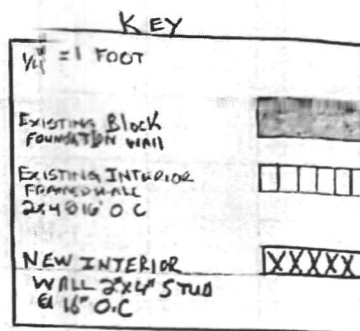 KEY
1/4" = 1 FOOT
EXISTING BLOCK
FOUNDATION WALL
EXISTING INTERIOR
FRAMED WALL
2x4@16" O C
NEW INTERIOR
WALL 2X4" STUD
@ 16" O.C
XXXXX